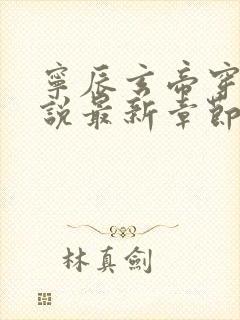 寧辰玄帝穿
說最新章節
林真劍